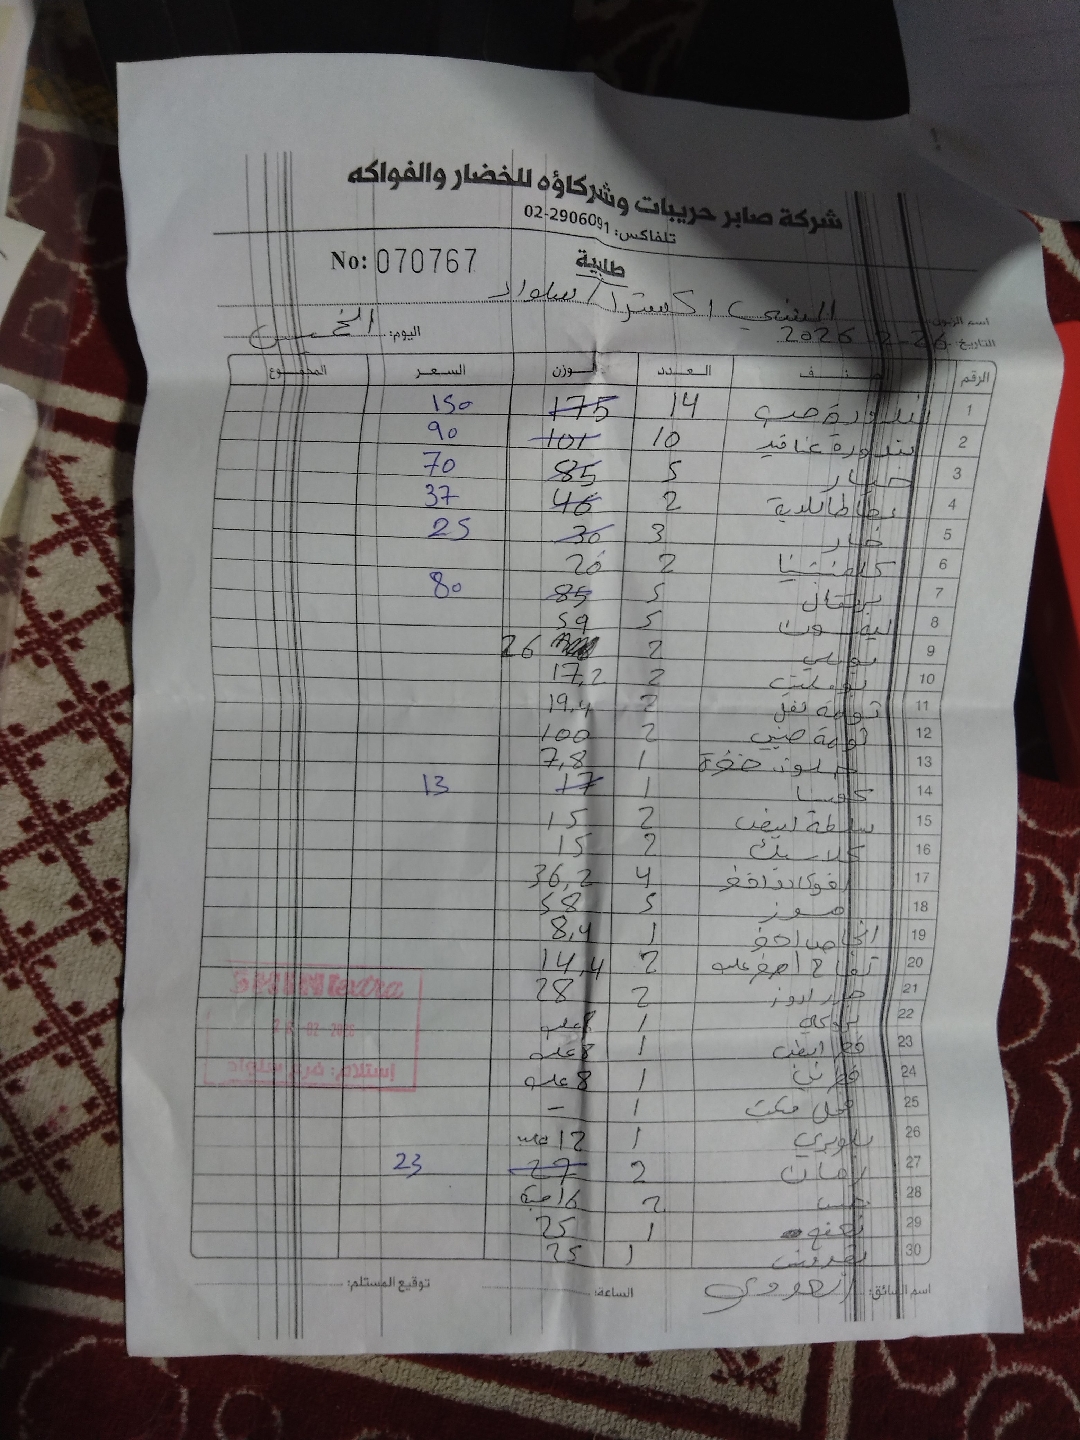 شركة صابر حريبات وشركاؤه للخضار والفواكه
تلفاكس: 02-2906091
طلبية
No: 070767
اسم الزبون: السني اكسترا / سلواد
التاريخ: 26-2-2026 اليوم: الخميس
الرقم صنف العدد الوزن السعر المجموع
1 بندورة حب 14 175 150
2 بندورة عناقيد 10 101 90
3 خيار 5 85 70
4 بطاطا 2 46 37
5 3 30 25
6 كلمنتينا 2 20
7 برتقال 5 85 80
8 ليمون 5 59
9 2 26
10 2 17,2
11 ثومة 2 19,4
12 ثومة صيني 2 100
13 1 7,8
14 كوسا 1 17 13
15 2 15
16 2 15
17 افوكادو 4 36,2
18 موز 5 58
19 1 8,4
20 تفاح اصفر علب 2 14,4
21 2 28
22 1 8 علب
23 فطر ابيض 1 8 علب
24 فطر بني 1 8 علب
25 1 -
26 بلوبري 1 12 علب
27 رمان 2 27 23
28 خس 2 16 حبة
29 نعنع 1 25
30 بقدونس 1 25
اسم السائق: الساعة: توقيع المستلم:
extra
إستلام: فرع سلواد